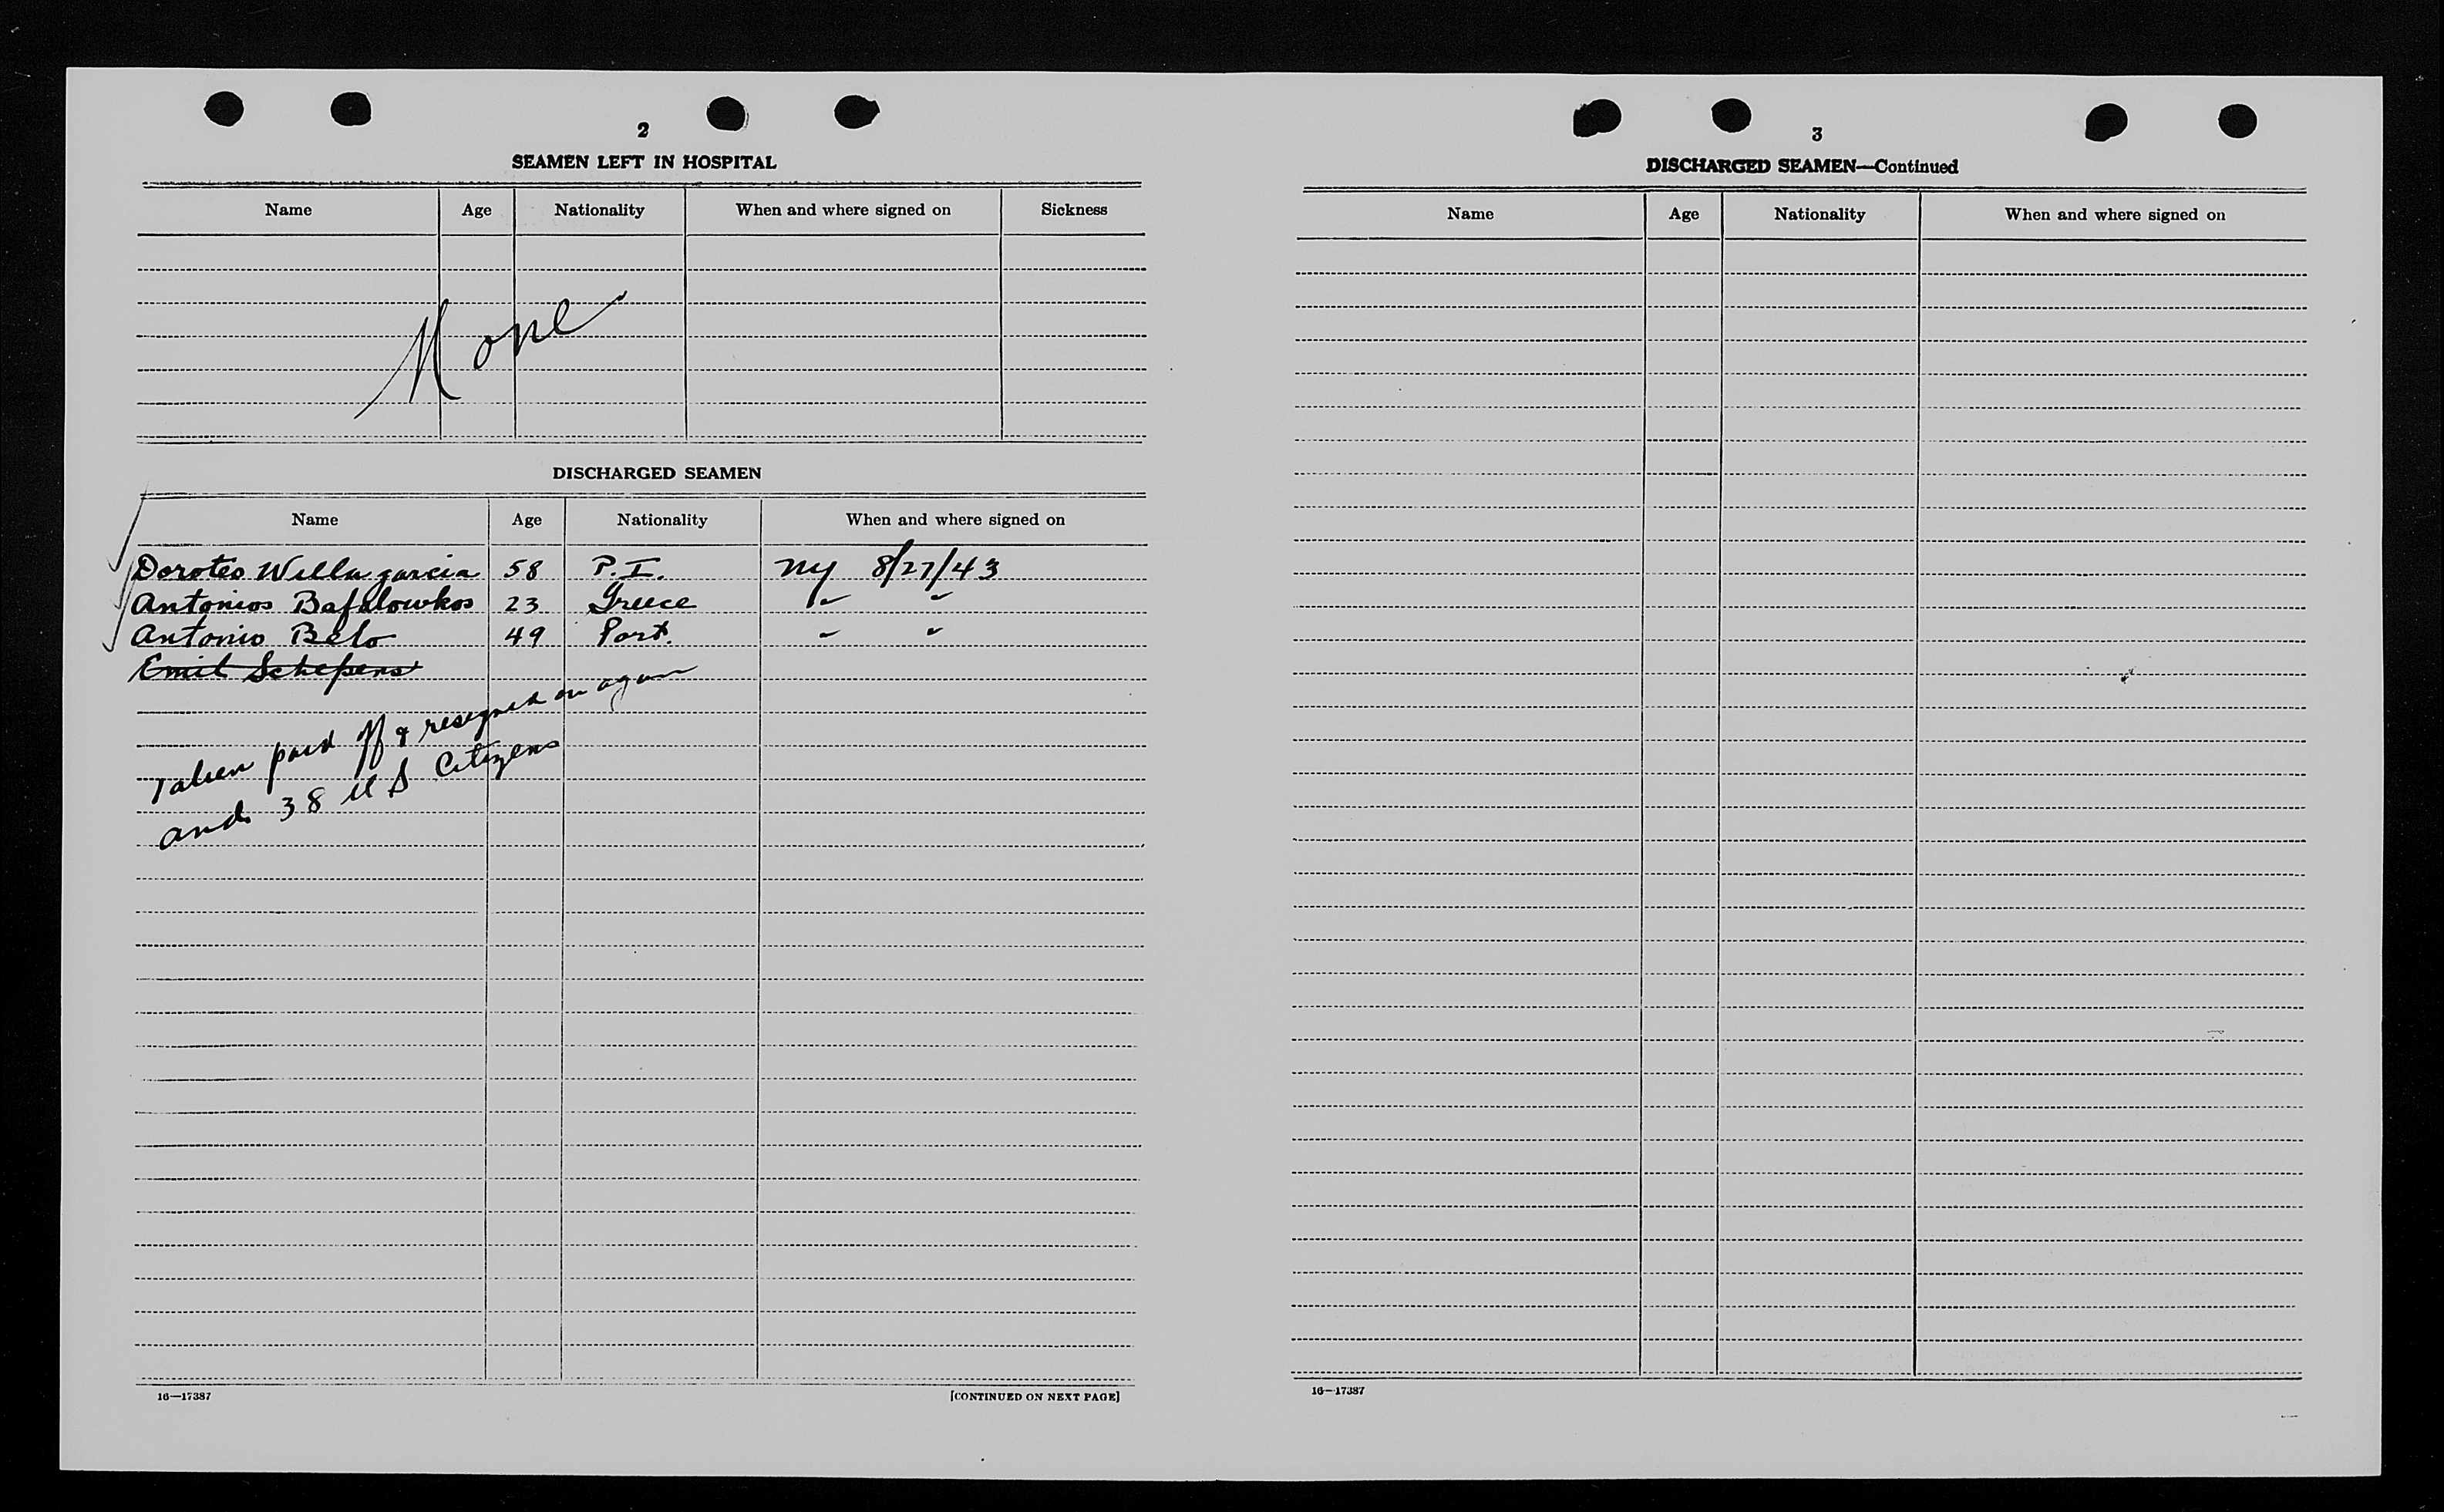 2
SEAMEN LEFT IN HOSPITAL
Name Age Nationality When and where signed on Sickness
None
DISCHARGED SEAMEN
Name Age Nationality When and where signed on
Doroteo Willagarcia 58 P.I. NY 8/27/43
Antonios Bafalowkos 23 Greece " "
Antonio Belo 49 Port. " "
Emil Schepens
Taken paid off & resigned on again
and 38 U S Citizens
16—17387 [CONTINUED ON NEXT PAGE]
3
DISCHARGED SEAMEN—Continued
Name Age Nationality When and where signed on
16—17387